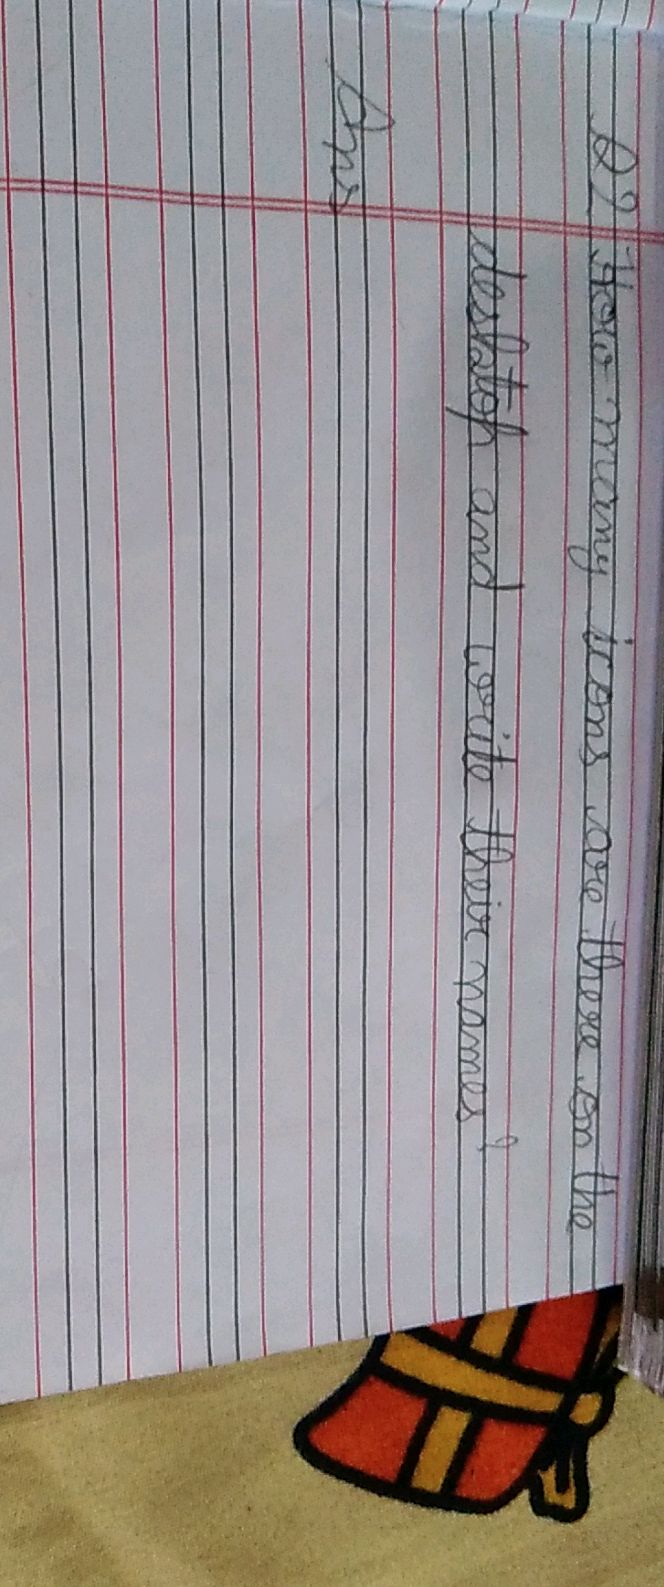 Q2 How many icons are there on the
desktop and write their names?
Ans